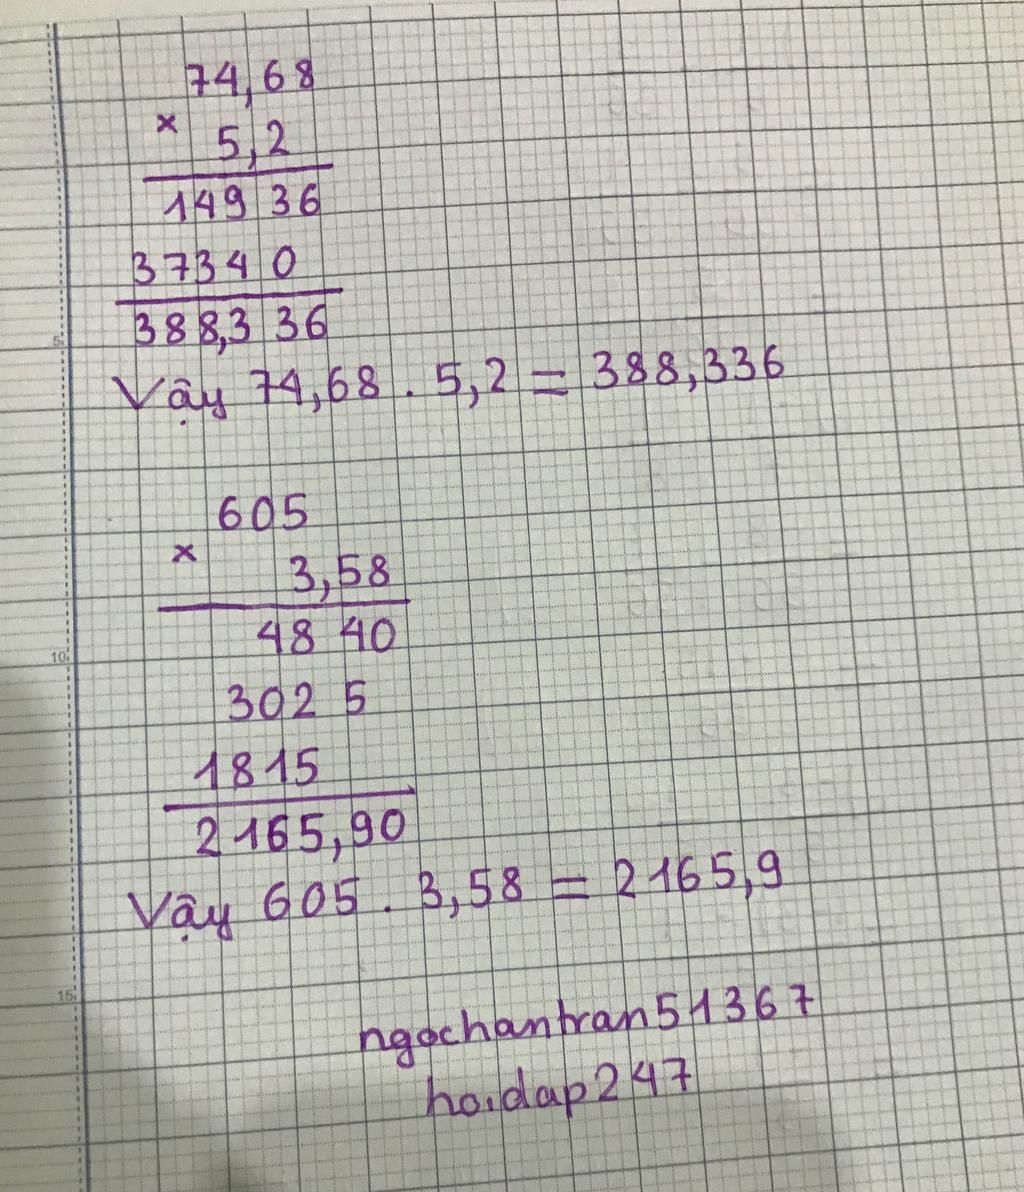 74,68
×
5,2
149 36
3734 0
388,3 36
Vậy 74,68 . 5,2 = 388,336
605
×
3,58
48 40
302 5
1815
2165,90
Vậy 605 . 3,58 = 2165,9
ngochantran51367
hoidap247
5
10
15